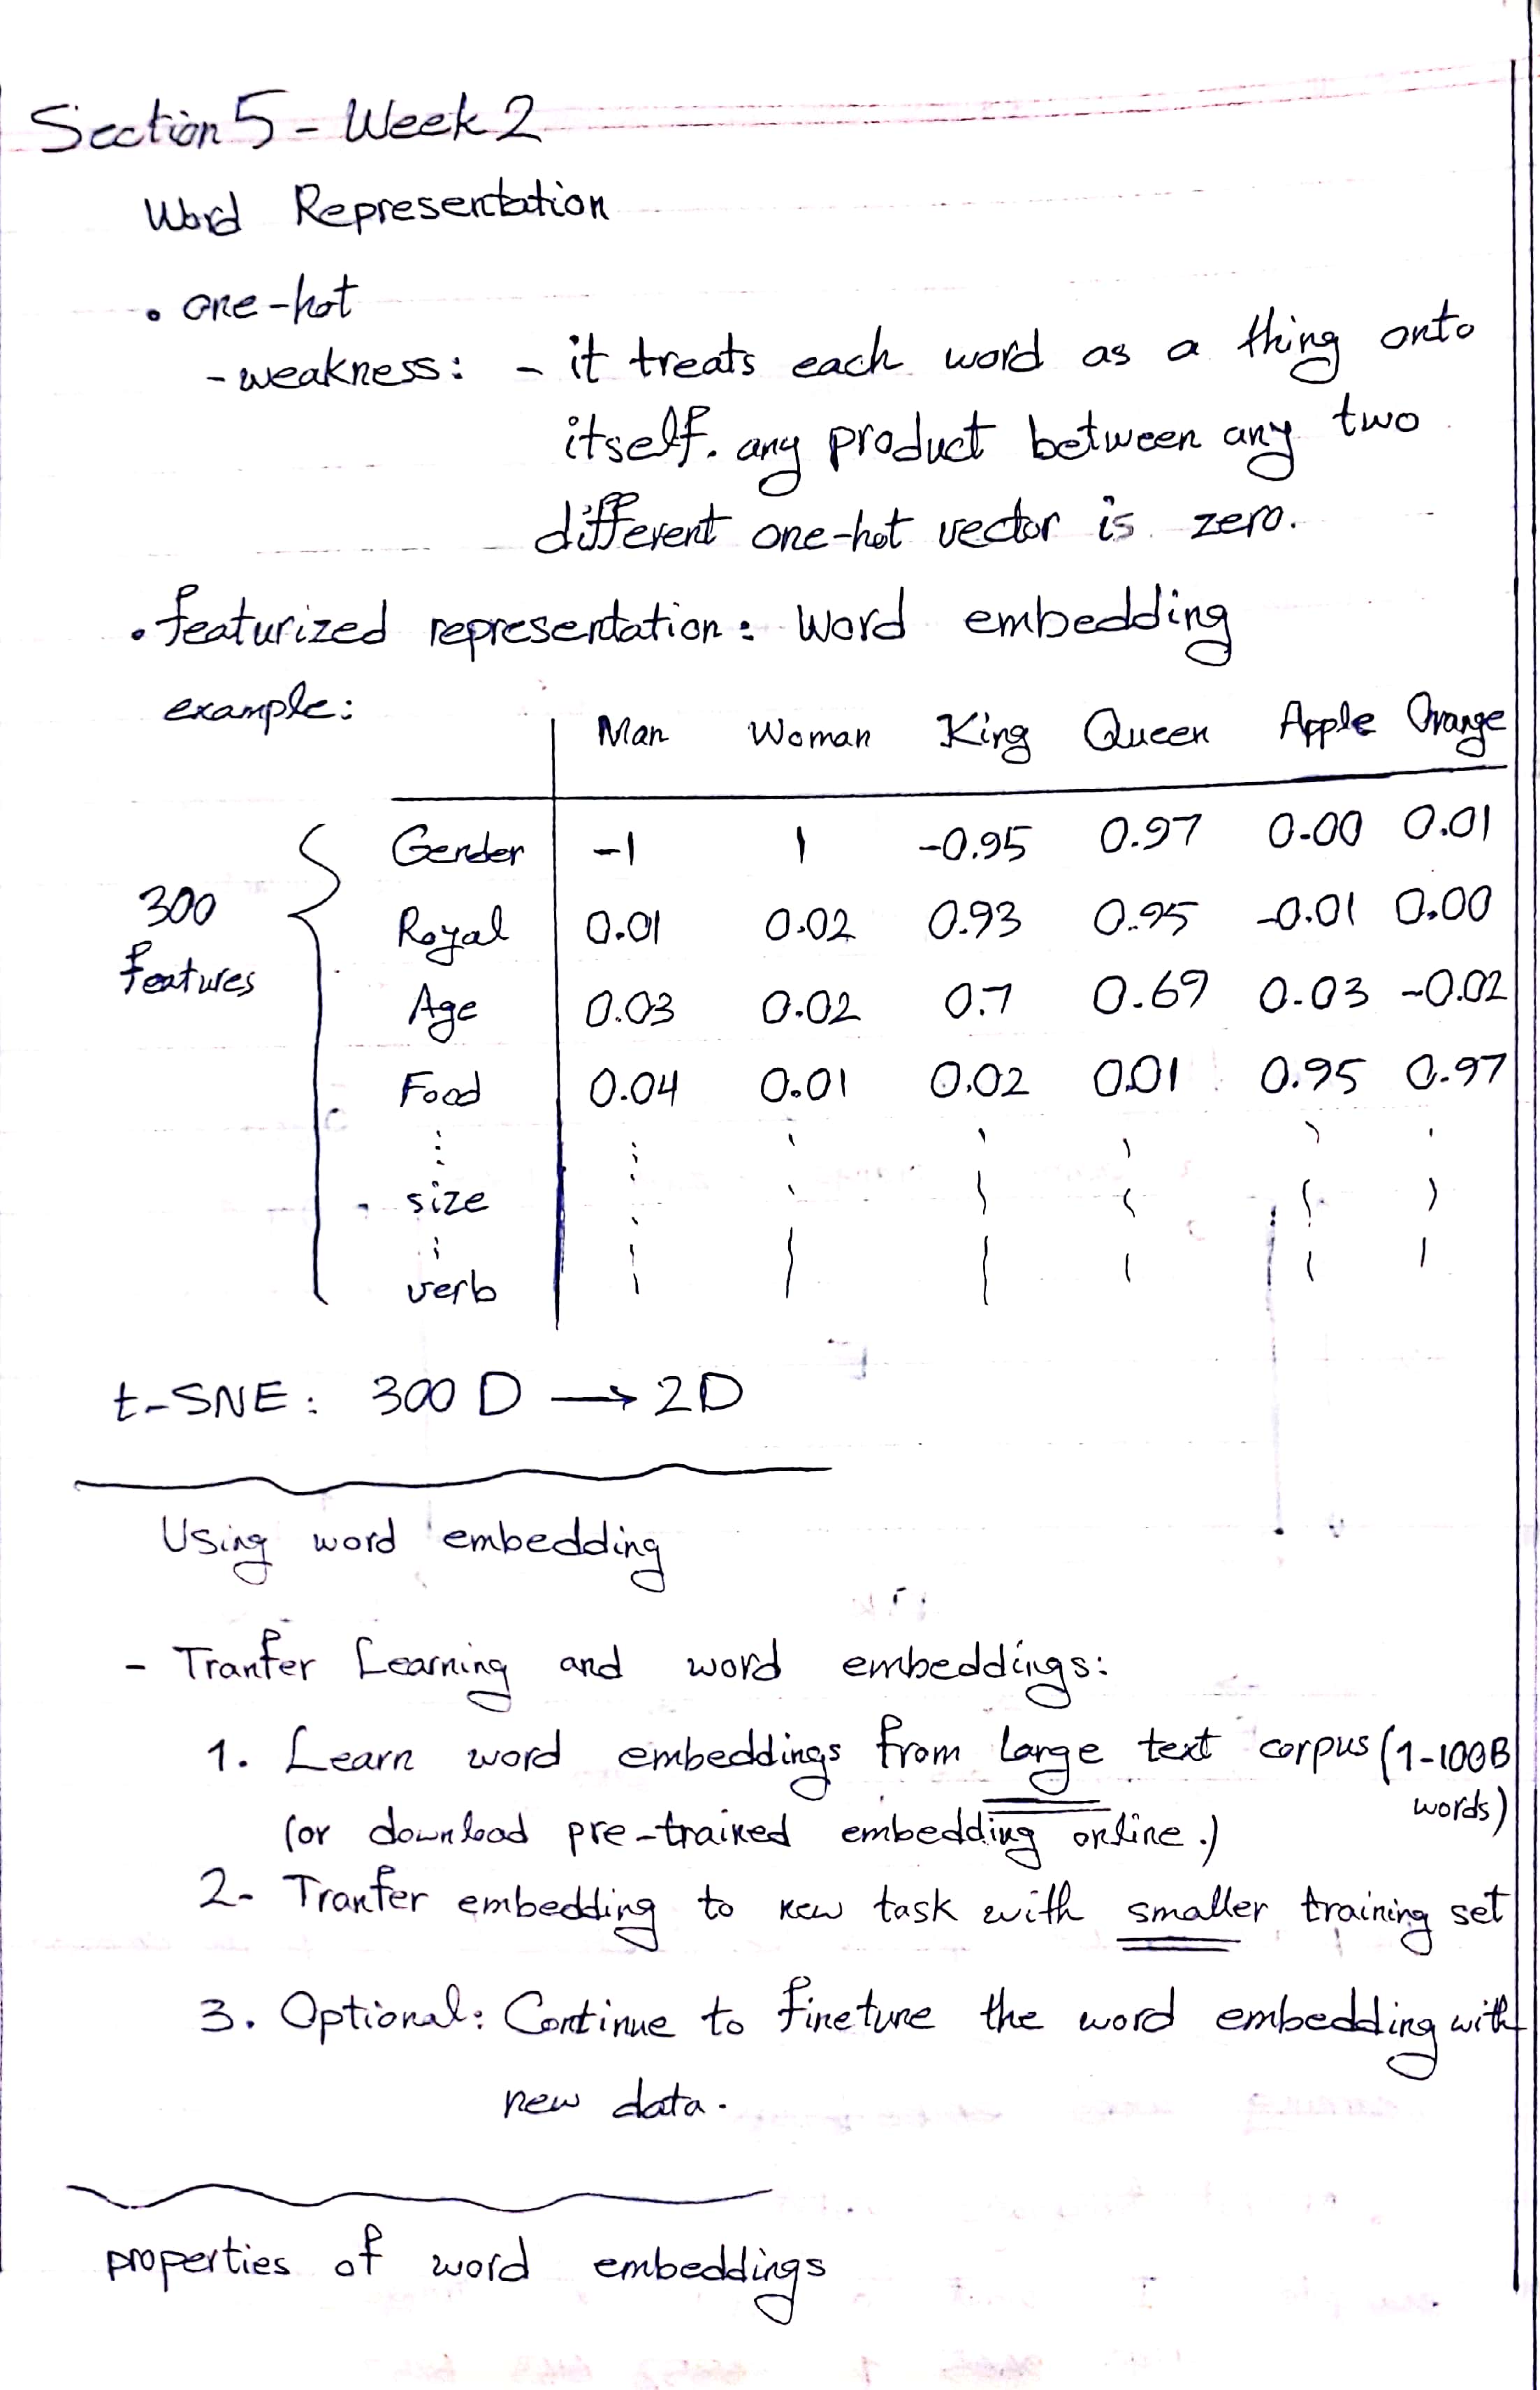 Section 5 - Week 2
Word Representation
• one-hot
- weakness: - it treats each word as a thing onto
itself. any product between any two
different one-hot vector is zero.
• featurized representation: Word embedding
example:
Man Woman King Queen Apple Orange
Gender -1 1 -0.95 0.97 0.00 0.01
300 features
Royal 0.01 0.02 0.93 0.95 -0.01 0.00
Age 0.03 0.02 0.7 0.69 0.03 -0.02
Food 0.04 0.01 0.02 0.01 0.95 0.97
size
verb
t-SNE: 300 D → 2D
Using word embedding
- Tranfer Learning and word embeddings:
1. Learn word embeddings from large text corpus (1-100B words)
(or download pre-trained embedding online.)
2- Tranfer embedding to new task with smaller training set
3. Optional: Continue to finetune the word embedding with
new data.
properties of word embeddings